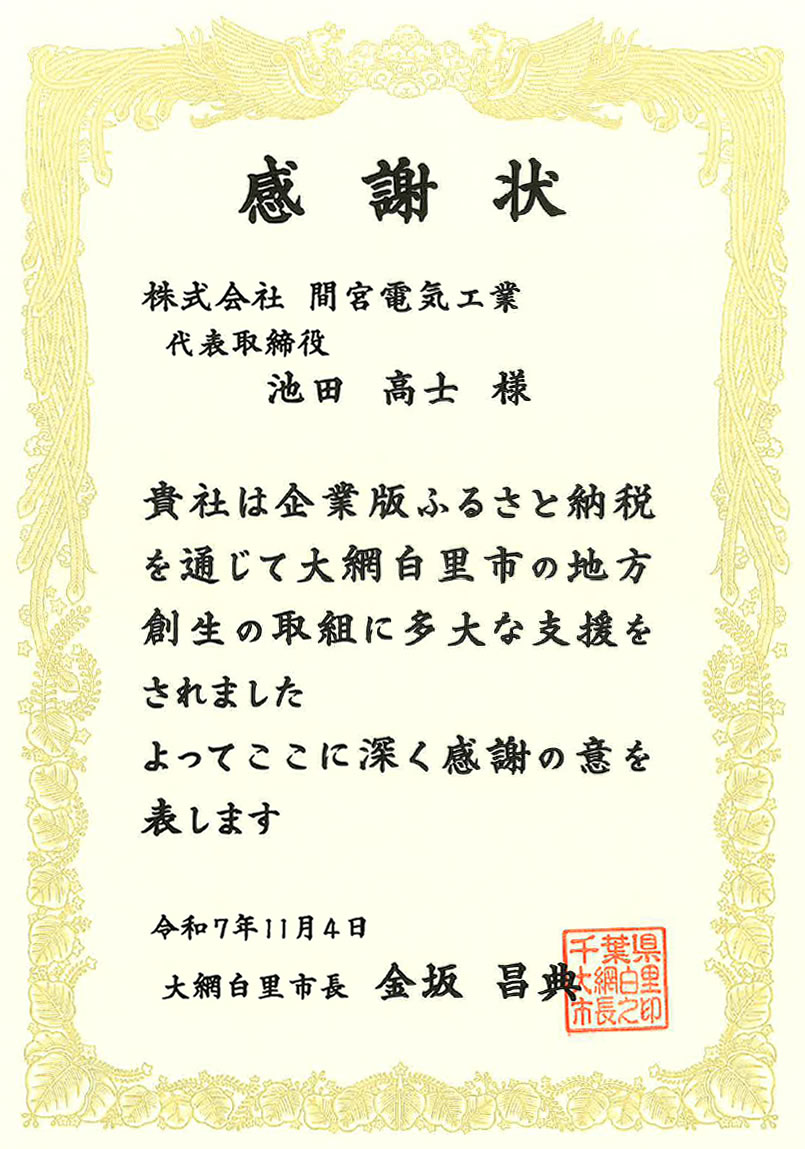 感謝状
株式会社 間宮電気工業
代表取締役
池田 高士 様
貴社は企業版ふるさと納税
を通じて大網白里市の地方
創生の取組に多大な支援を
されました
よってここに深く感謝の意を
表します
令和7年11月4日
大網白里市長 金坂 昌典
千葉県
大網白里
市長之印